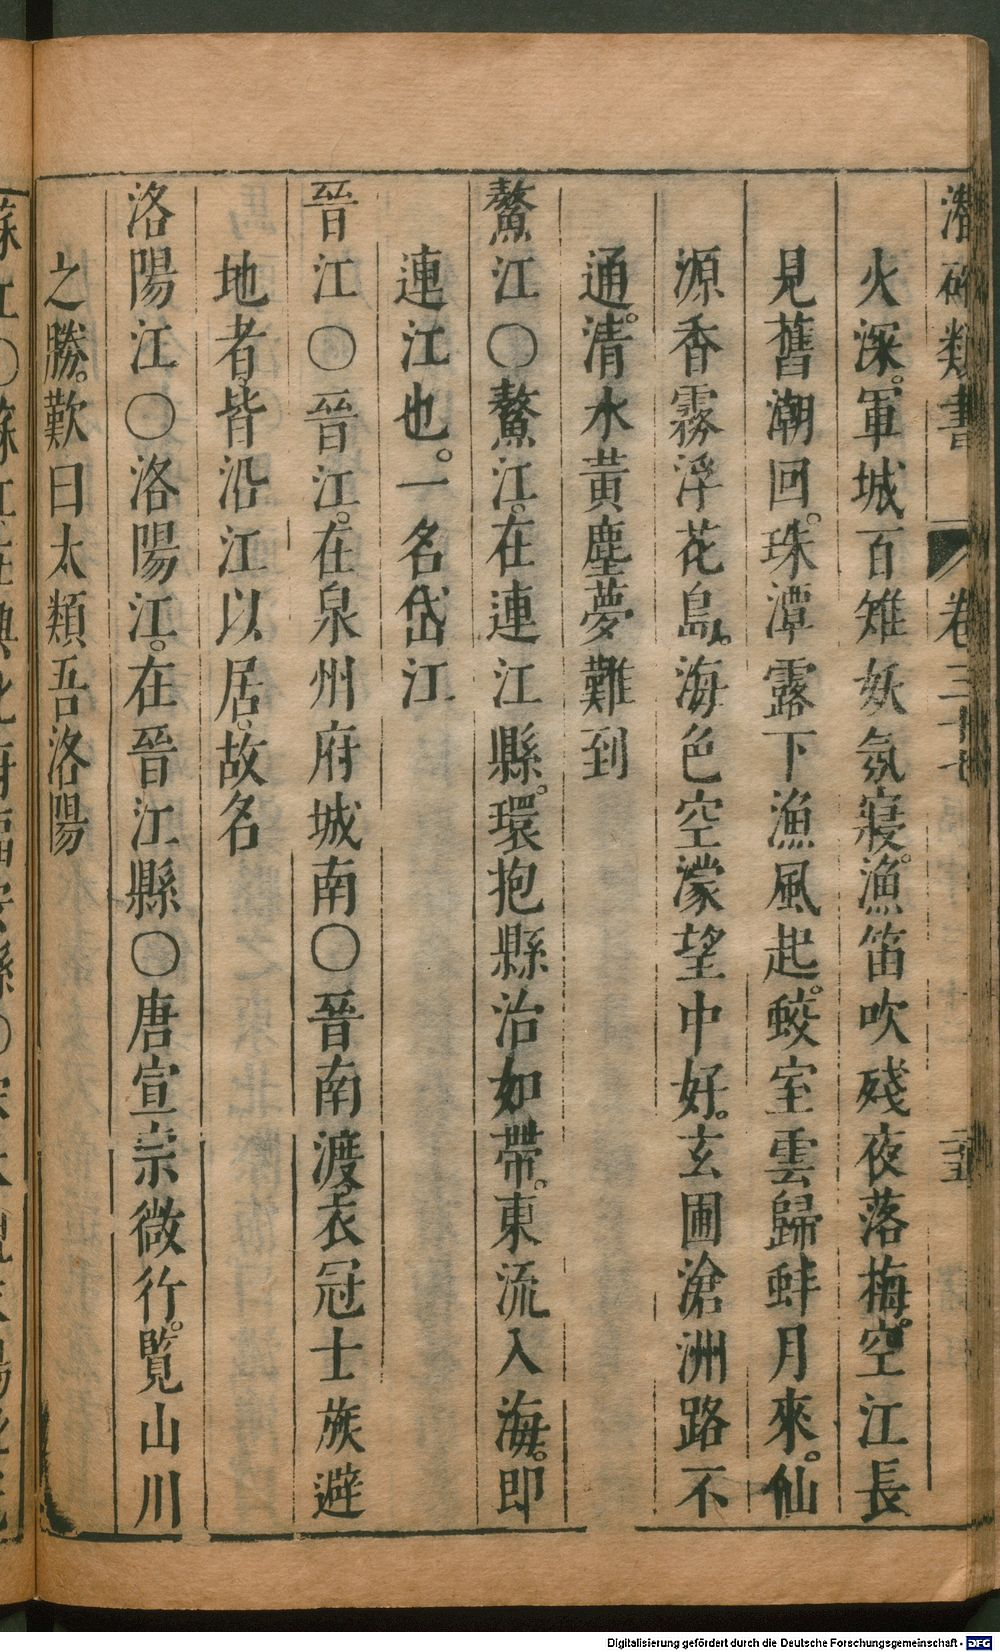 潛確類書 卷三十七 二五
火深。軍城百雉妖氛寢。漁笛吹殘夜落梅。空江長
見舊潮回。珠潭露下漁風起。蛟室雲歸蚌月來。仙
源香霧浮花島。海色空濛望中好。玄圃滄洲路不
通。清水黃塵夢難到
鰲江〇鰲江。在連江縣。環抱縣治如帶。東流入海。即
連江也。一名岱江
晉江〇晉江。在泉州府城南〇晉南渡。衣冠士族避
地者。皆沿江以居。故名
洛陽江〇洛陽江。在晉江縣〇唐宣宗微行。覽山川
之勝。歎曰太類吾洛陽
Digitalisierung gefördert durch die Deutsche Forschungsgemeinschaft - DFG